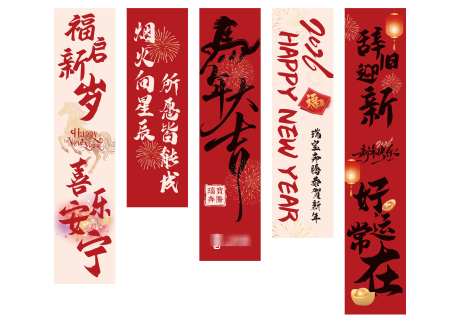 福启新岁
Happy New Year
喜乐安宁
烟火向星辰
所愿皆能成
馬年大吉
瑞寶
奔騰
2026
HAPPY NEW YEAR
福
辞旧迎新
2026
新年快乐
好运常在